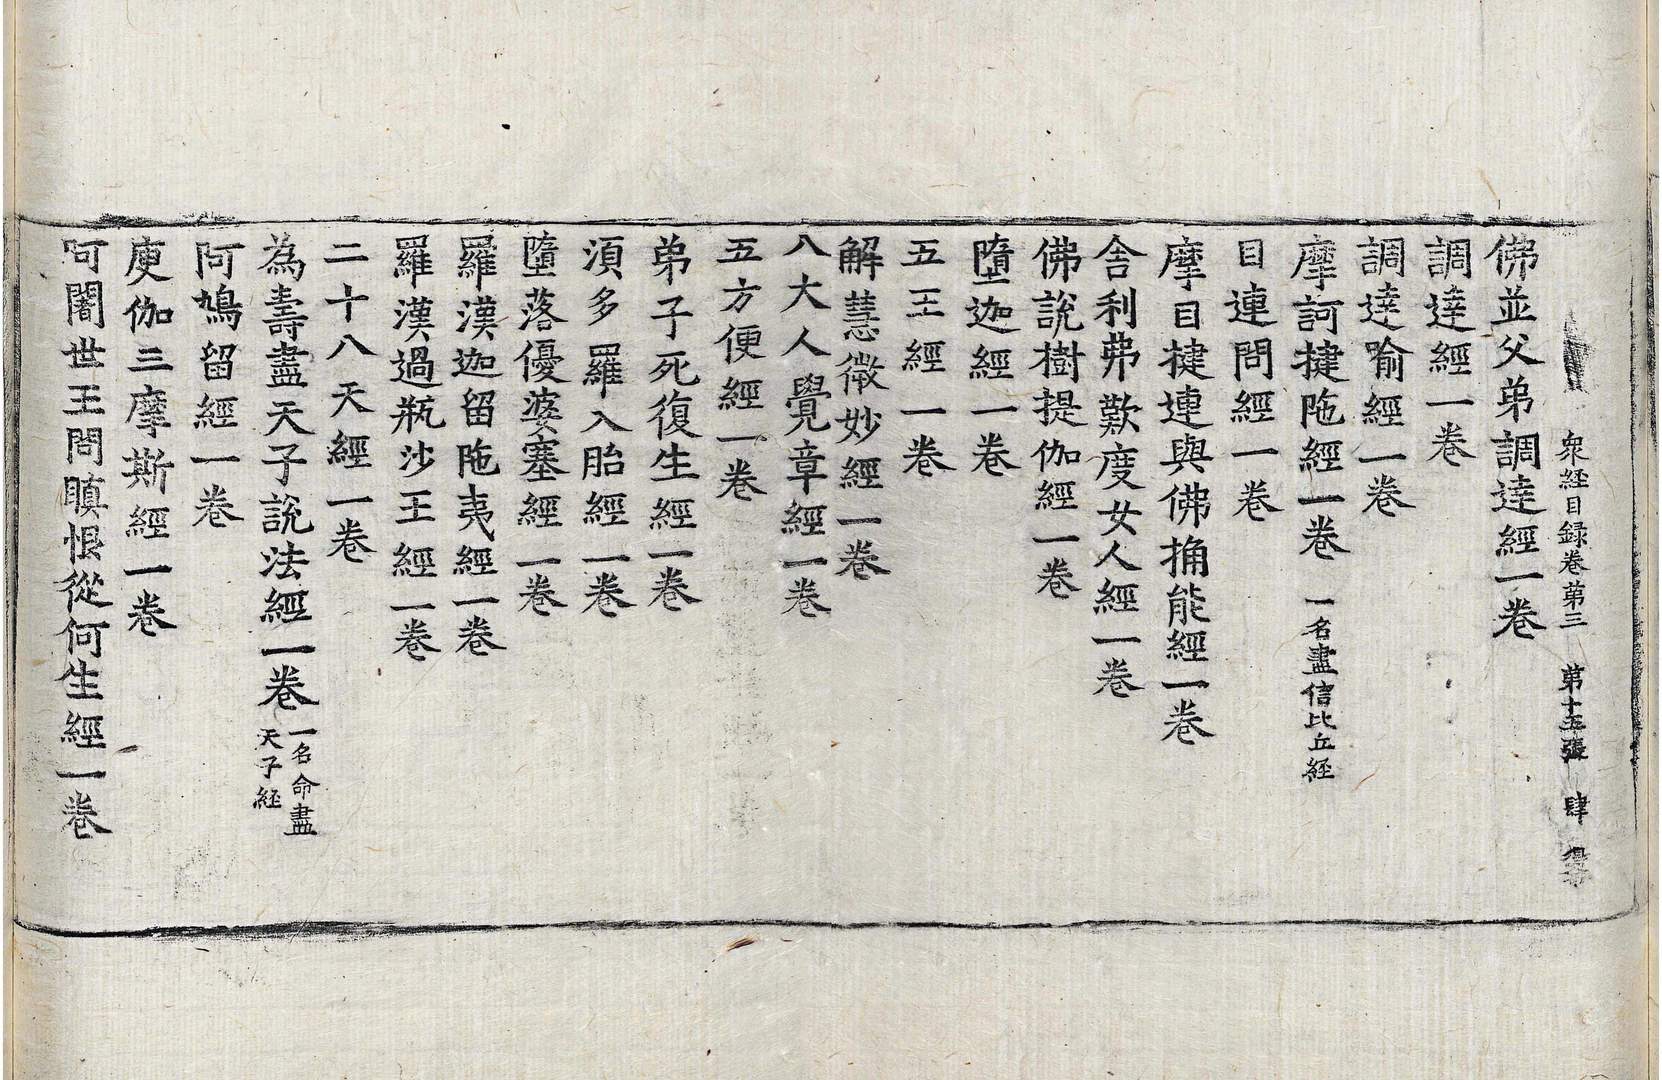 衆経目録卷第三 第十五張 肆
佛並父弟調達經一卷
調達經一卷
調達喻經一卷
摩訶揵陁經一卷 一名盡信比丘経
目連問經一卷
摩目揵連與佛捔能經一卷
舎利弗歎度女人經一卷
佛說樹提伽經一卷
墮迦經一卷
五王經一卷
解慧微妙經一卷
八大人覺章經一卷
五方便經一卷
弟子死復生經一卷
須多羅入胎經一卷
墮落優婆塞經一卷
羅漢迦留陁夷經一卷
羅漢過瓶沙王經一卷
二十八天經一卷
為壽盡天子說法經一卷 一名命盡天子経
阿鳩留經一卷
庾伽三摩斯經一卷
阿闍世王問瞋恨從何生經一卷